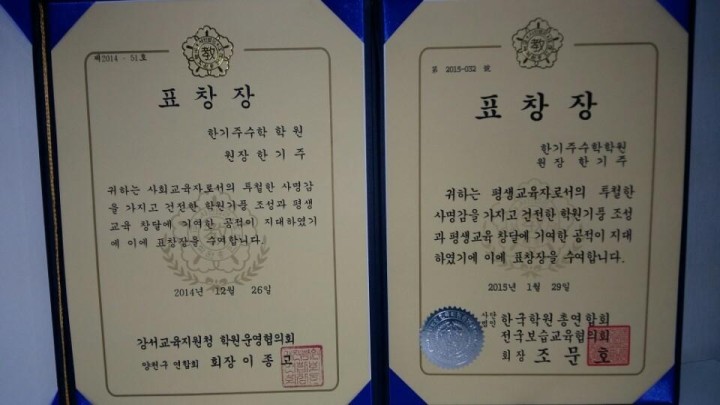 제2014 - 51호
教
표창장
한기주수학 학원
원장 한기주
귀하는 사회교육자로서의 투철한 사명감
을 가지고 건전한 학원기풍 조성과 평생
교육 창달에 기여한 공적이 지대하였기
에 이에 표창장을 수여합니다.
2014년 12월 26일
강서교육지원청 학원운영협의회
양천구 연합회 회장 이종
제 2015-032 號
教
표창장
한기주수학학원
원장 한기주
귀하는 평생교육자로서의 투철한
사명감을 가지고 건전한 학원기풍 조성
과 평생교육 창달에 기여한 공적이 지대
하였기에 이에 표창장을 수여합니다.
2015년 1월 29일
사단법인 한국학원총연합회
전국보습교육협의회
회장 조문호